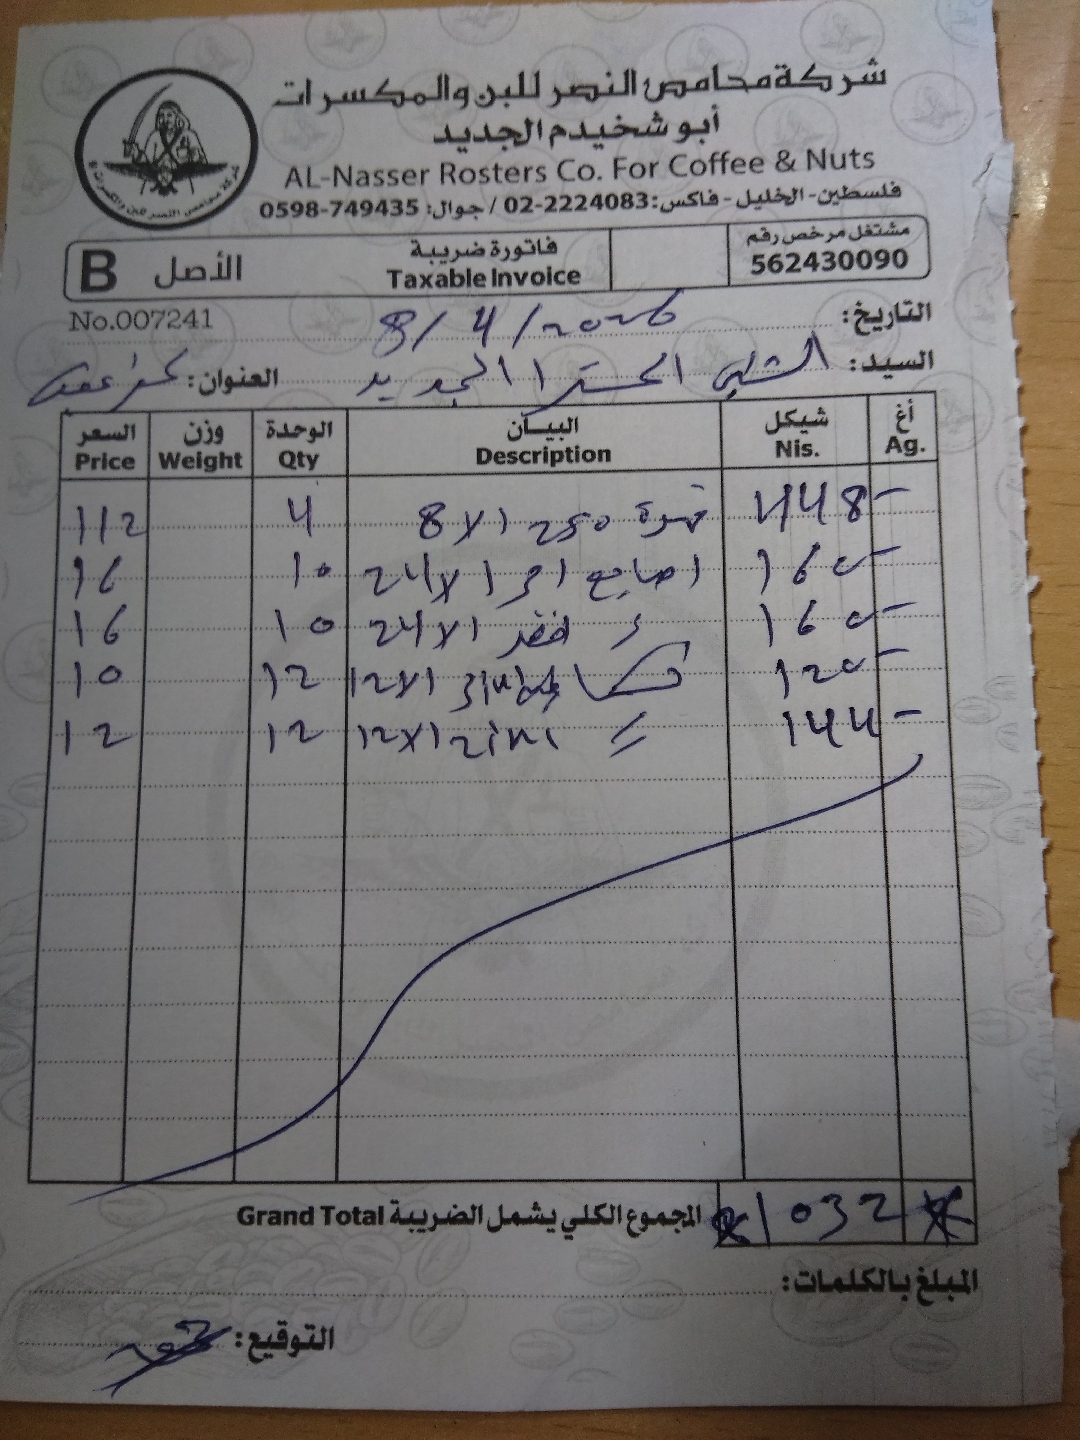 شركة محامص النصر للبن والمكسرات
أبو شخيدم الجديد
AL-Nasser Rosters Co. For Coffee & Nuts
فلسطين - الخليل - فاكس: 02-2224083 / جوال: 0598-749435
مشتغل مرخص رقم 562430090
فاتورة ضريبة Taxable Invoice
الأصل B
No.007241
التاريخ: 8/4/2026
السيد: الجديد
العنوان: كفر عقب
أغ Ag. شيكل Nis. البيــان Description الوحدة Qty وزن Weight السعر Price
448- قهوة 250 8x1 4 112
160- اصابع 24x1 10 16
160- 24x1 10 16
120- 12x1 12 10
144- 12x1 12 12
المجموع الكلي يشمل الضريبة Grand Total 1032
المبلغ بالكلمات:
التوقيع: